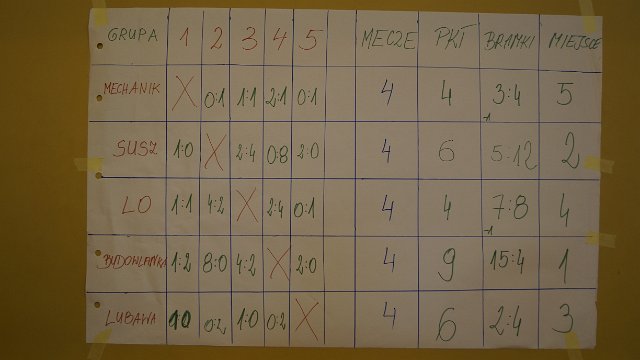 GRUPA 1 2 3 4 5 MECZE PKT BRAMKI MIEJSCE
MECHANIK X 0:1 1:1 2:1 0:1 4 4 3:4 5
-1
SUSZ 1:0 X 2:4 0:8 2:0 4 6 5:12 2
LO 1:1 4:2 X 2:4 0:1 4 4 7:8 4
-1
BUDOWLANKA 1:2 8:0 4:2 X 2:0 4 9 15:4 1
LUBAWA 1:0 0:2 1:0 0:2 X 4 6 2:4 3